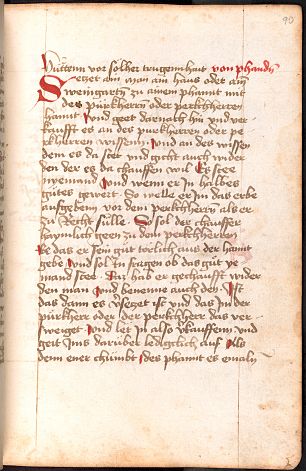 90
hüttenn vor solher trugennhait von phandn
Setzet ain man ain haus oder ain
weingartn zu ainem phannt mit
des purkherrn oder perkhherren
hannt Und geet darnach hin und ver-
kaufft es an des purkherren oder pe
rkherren wissenn Und an des wissen
dem es da stet und gicht auch wider
den der es da chauffen wil Es stee
nyemand Und wenn er in halbes
gutes gewert So welle er im das erbe
aufgeben vor dem perkhherrn als er
zu Recht sülle So sol der chauffer
haymlich geen zu dem perkhherren
das er sein gut icht aus der hannt
gebe Und sol In fragen ob das gut ye
mand stee Dar hab er gechaufft wider
den man Und benenne auch den Ist
das dann es vsetzet ist und das In der
purkherr oder der perkhherr das ver-
sweiget Und let in also vkauffenn und
geit Ims daruber lediglich auf Als
denn ener chümbt des phannt es ewaln